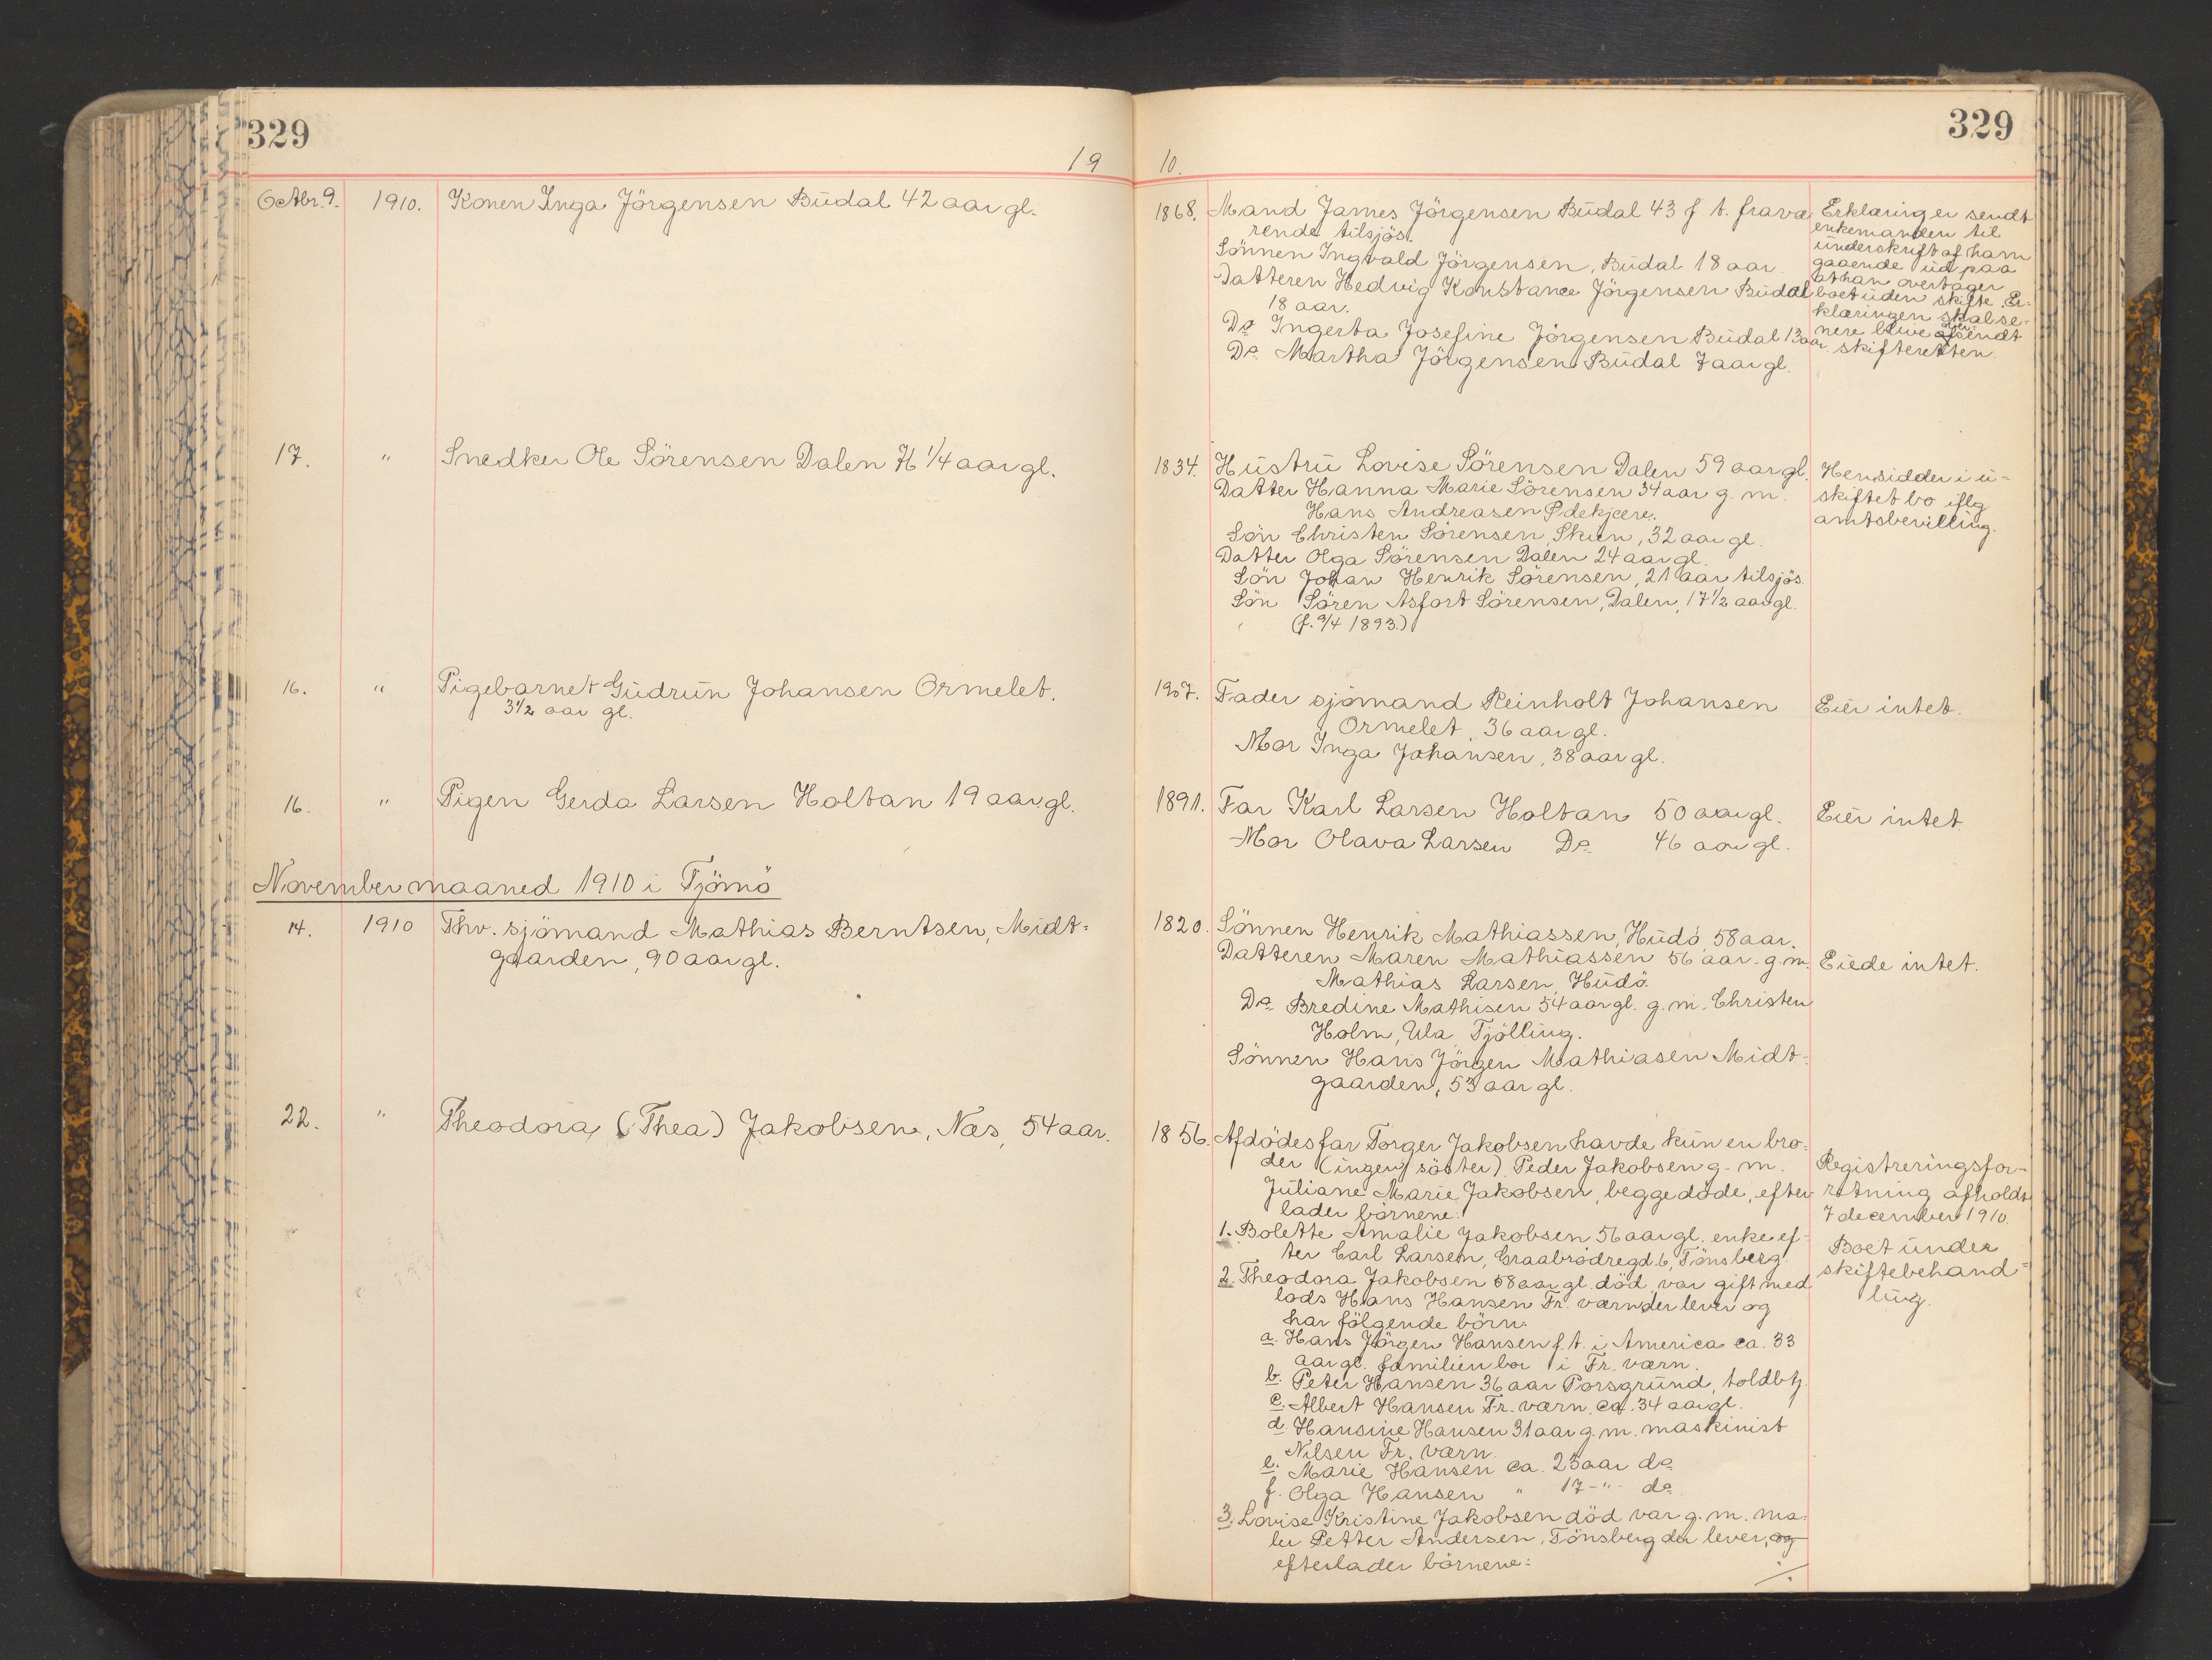 329
19
Octbr. 9. 1910. Konen Inga Jörgensen Budal 42 aar gl.
17. " Snedker Ole Sörensen Dalen 76 1/4 aar gl.
16. " Pigebarnet Gudrun Johansen Ormelet.
3 1/2 aar gl.
16. " Pigen Gerda Larsen Holtan 19 aar gl.
November maaned 1910 i Tjömö
14. 1910 Thv. sjömand Mathias Berntsen, Midt-
gaarden, 90 aar gl.
22. " Theodora (Thea) Jakobsen, Næs, 54 aar.
329
10.
1868. Mand James Jörgensen Budal 43 f. t. fravæ
rende tilsjös.
Sönnen Ingvald Jörgensen, Budal 18 aar
Datteren Hedvig Konstance Jörgensen Budal
18 aar.
Do Ingerta Josefine Jörgensen Budal 13 aar.
Do Martha Jörgensen Budal 7 aar gl.
Erklæring er sendt
enkemanden til
underskrift af ham
gaaende ud paa
at han overtager
boet uden skifte. Er-
klæringen skal se-
nere blive sendt
skifteretten.
1834. Hustru Lovise Sörensen Dalen 59 aar gl.
Datter Hanna Marie Sörensen 34 aar g. m.
Hans Andreasen
Sön Christen Sörensen, Skien, 32 aar gl.
Datter Olga Sörensen Dalen 24 aar gl.
Sön Johan Henrik Sörensen, 21 aar tilsjös.
Sön Sören Asfort Sörensen, Dalen, 17 1/2 aar gl.
(f. 9/4 1893.)
Hensidder i u-
skiftet bo iflg
amtsbevilling.
1907. Fader sjömand Reinholt Johansen
Ormelet, 36 aar gl.
Mor Inga Johansen, 38 aar gl.
Eier intet.
1891. Far Karl Larsen Holtan 50 aar gl.
Mor Olava Larsen Do 46 aar gl.
Eier intet
1820. Sönnen Henrik Mathiassen, Hudö, 58 aar.
Datteren Maren Mathiassen 56 aar g. m.
Mathias Larsen, Hudö.
Do Bredine Mathisen 54 aar gl. g. m. Christen
Holm, Ula, Tjölling.
Sönnen Hans Jörgen Mathiasen Midt-
gaarden, 53 aar gl.
Eiede intet.
1856. Afdödes far Torger Jakobsen havde kun en bro-
der (ingen söster) Peder Jakobsen g. m.
Juliane Marie Jakobsen, begge döde, efter
lader börnene:
1. Bolette Amalie Jakobsen 56 aar gl. enke ef-
ter Carl Larsen, Graabrödregd. 6, Tönsberg.
2. Theodora Jakobsen 58 aar gl. död, var gift med
lods Hans Hansen Fr. værn der lever og
har fölgende börn:
a. Hans Jörgen Hansen f. t. i America ca. 33
aar gl. familien bor i Fr. værn.
b. Peter Hansen 36 aar Porsgrund, toldbtj.
c. Albert Hansen Fr. værn. ca. 34 aar gl.
d. Hansine Hansen 31 aar g. m. maskinist
Nilsen Fr. værn.
e. Marie Hansen ca. 25 aar do
f. Olga Hansen " 17 - " - do
3. Lovise Kristine Jakobsen död var g. m. ma-
ler Petter Andersen, Tönsberg der lever, og
efterlader börnene:
./.
Registreringsfor-
retning afholdt
7 december 1910.
Boet under
skiftebehand-
ling.